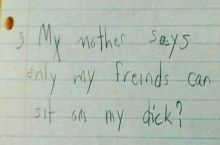 3. My mother says
only my freinds can
sit on my dick?